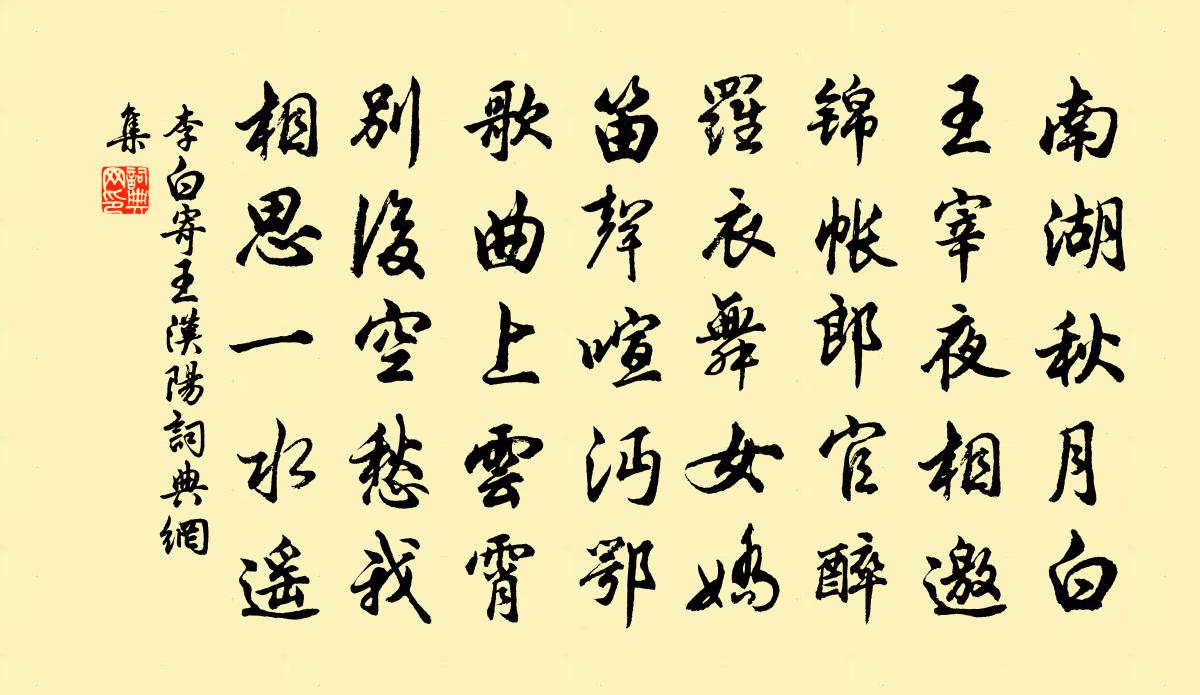 南湖秋月白
王宰夜相邀
锦帐郎官醉
羅衣舞女嬌
笛聲喧沔鄂
歌曲上雲霄
别後空愁我
相思一水遥
李白寄王漢陽詞典網
集
詞典
网印